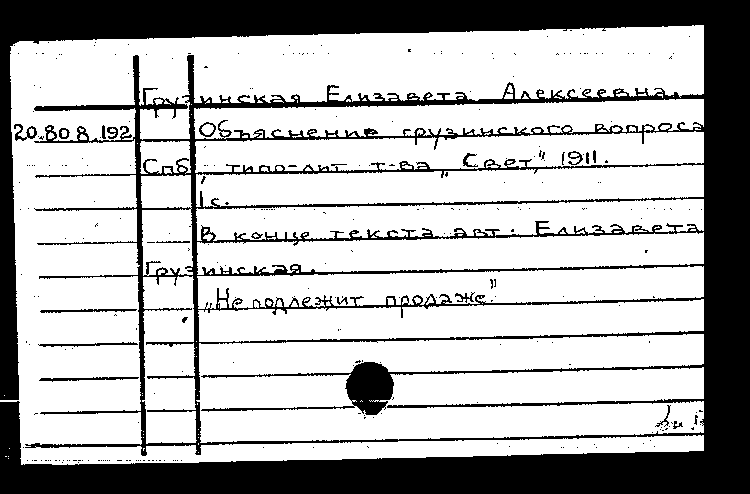 Грузинская Елизавета Алексеевна.
20.80 8.192 Объяснение грузинского вопроса
Спб, типо-лит т-ва „Свет," 1911.
1 с.
В конце текста авт.: Елизавета
Грузинская.
„Не подлежит продаже"